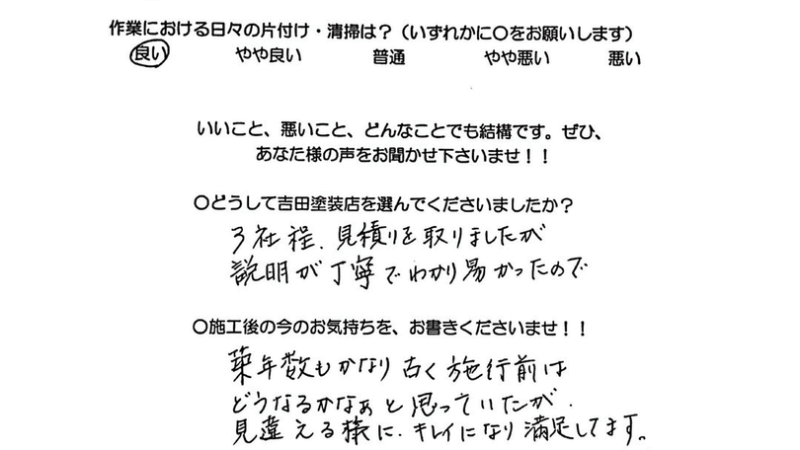 作業における日々の片付け・清掃は？（いずれかに〇をお願いします）
良い　やや良い　普通　やや悪い　悪い
いいこと、悪いこと、どんなことでも結構です。ぜひ、
あなた様の声をお聞かせ下さいませ！！
〇どうして吉田塗装店を選んでくださいましたか？
3社程、見積りを取りましたが
説明が丁寧でわかり易かったので
〇施工後の今のお気持ちを、お書きくださいませ！！
築年数もかなり古く施行前は
どうなるかなぁと思っていたが、
見違える様に、キレイになり満足してます。